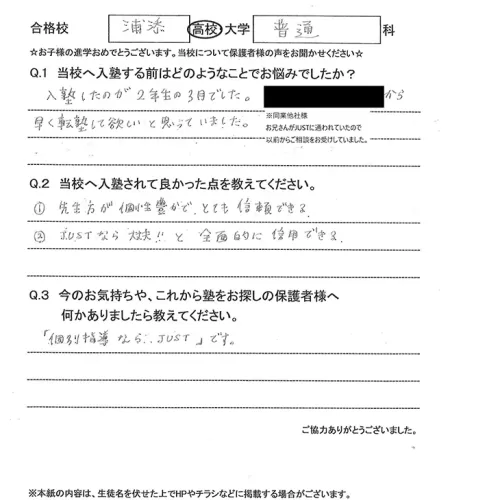 合格校 浦添 高校・大学 普通 科
☆お子様の進学おめでとうございます。当校について保護者様の声をお聞かせください☆
Q.1 当校へ入塾する前はどのようなことでお悩みでしたか？
入塾したのが2年生の3月でした。 から
早く転塾して欲しいと思っていました。
※同業他社様
お兄さんがJUSTに通われていたので
以前からご相談をお受けしていました。
Q.2 当校へ入塾されて良かった点を教えてください。
① 先生方が個性豊かで、とても信頼できる。
② JUSTなら大丈夫!!と全面的に信用できる。
Q.3 今のお気持ちや、これから塾をお探しの保護者様へ
何かありましたら教えてください。
「個別指導なら、JUST」です。
ご協力ありがとうございました。
※本紙の内容は、生徒名を伏せた上でHPやチラシなどに掲載する場合がございます。